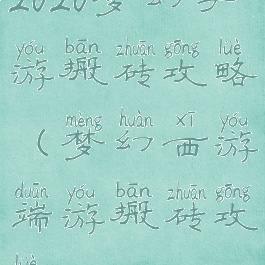 2020梦幻手
yóu bān zhuān gōng lüè
游搬砖攻略
mèng huàn xī yóu
（梦幻西游
duān yóu bān zhuān gōng
端游搬砖攻
lüè